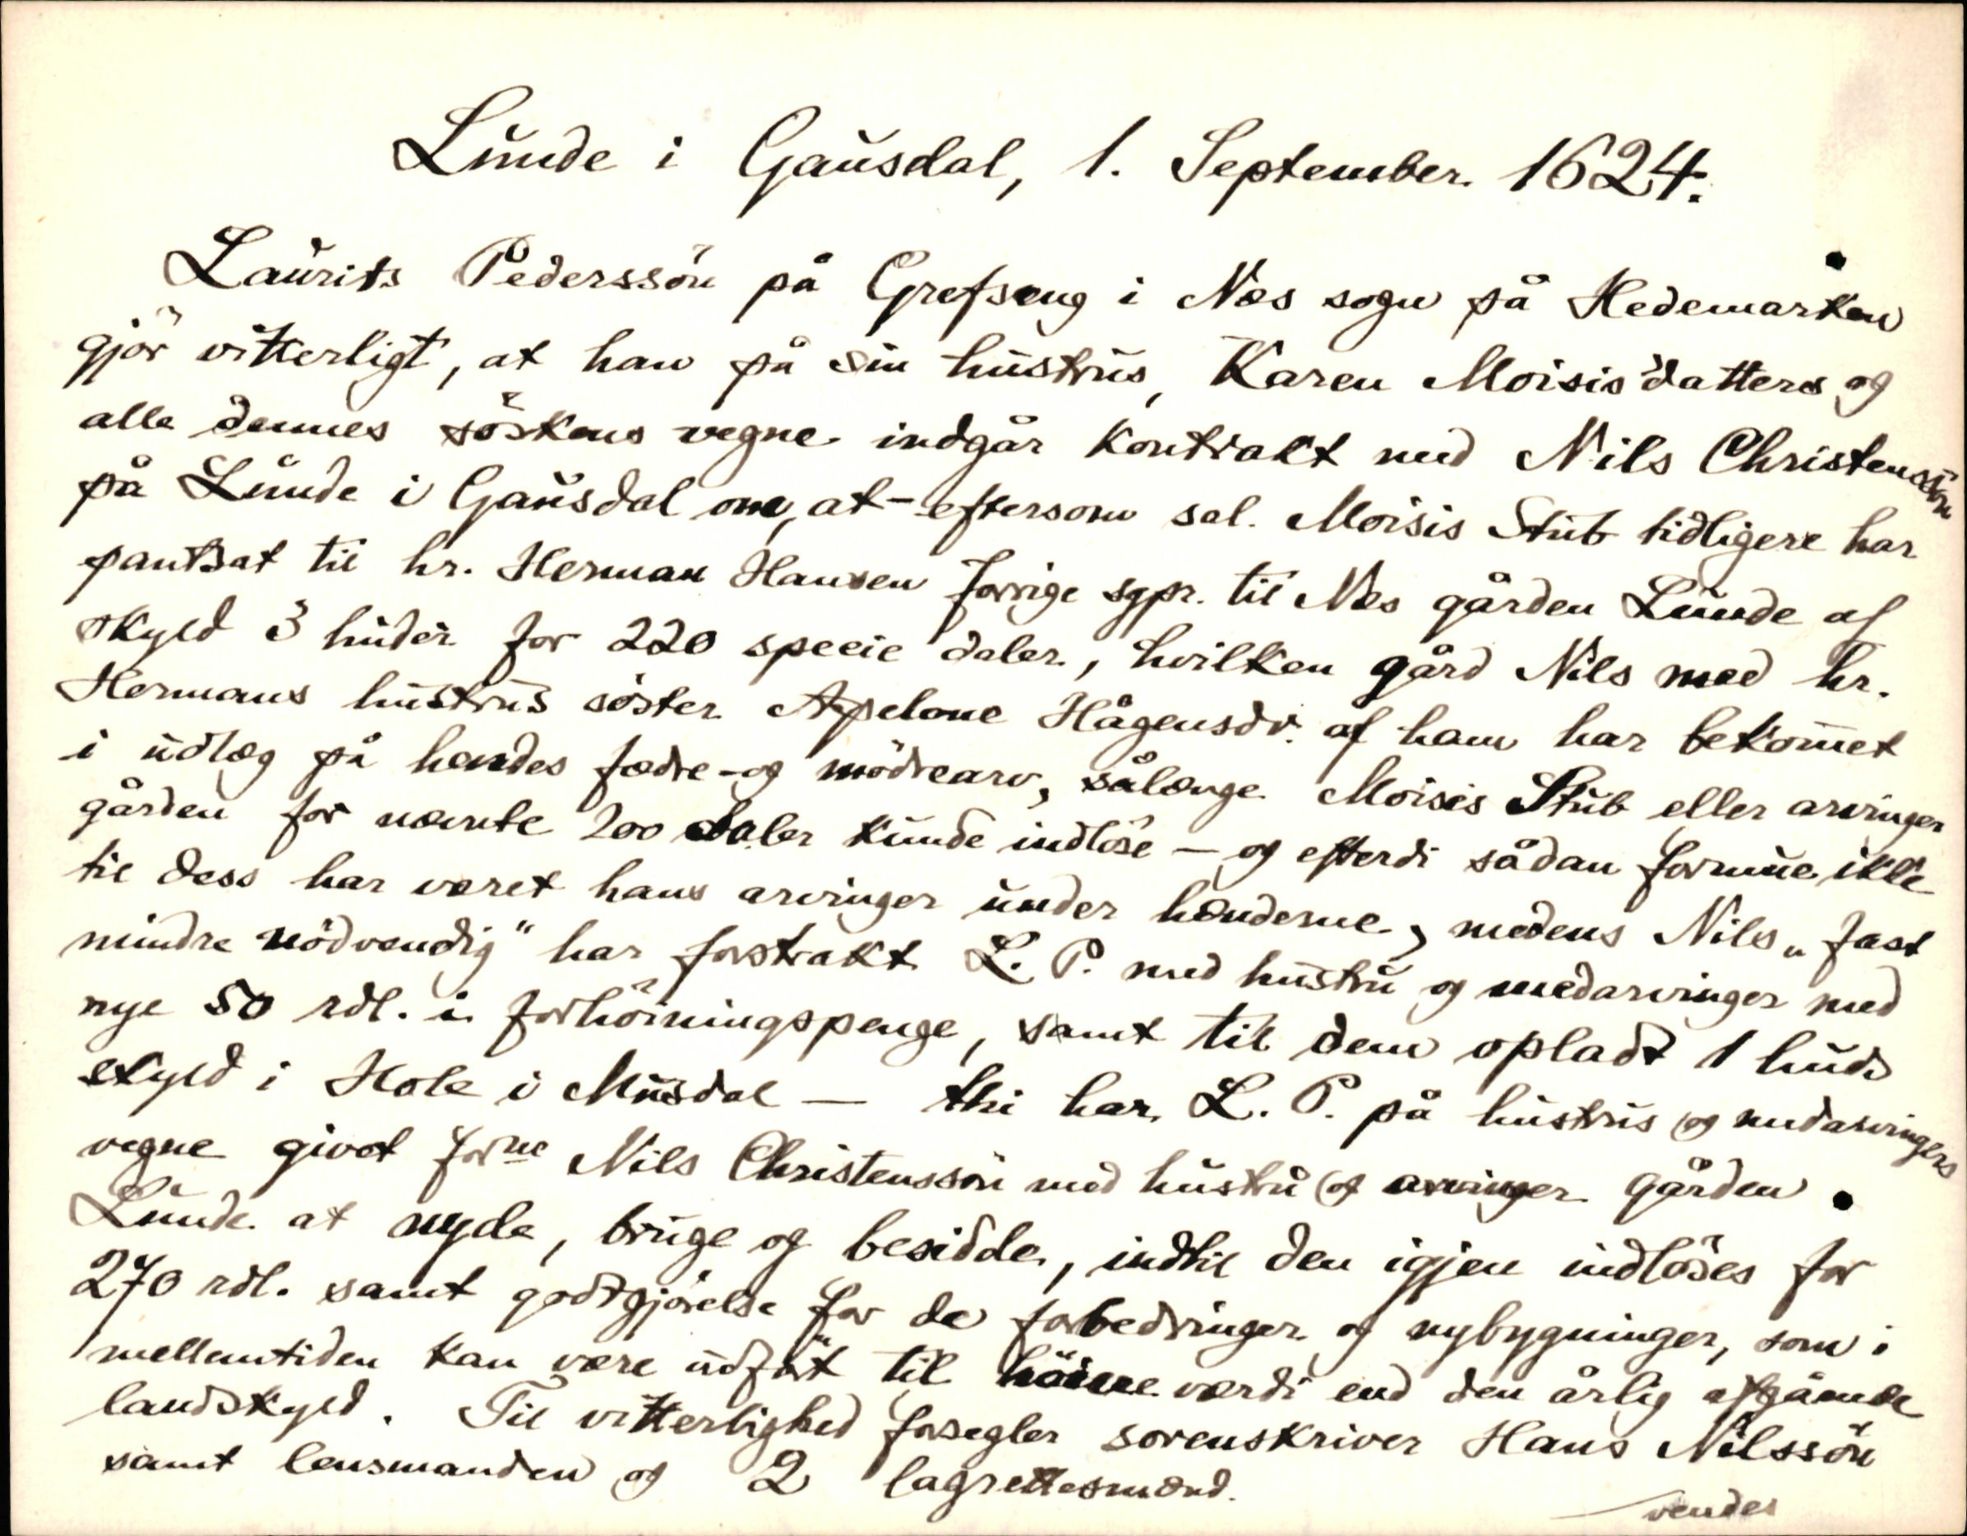 Lunde i Gausdal, 1. September 1624.
Laurits Pederssön på Grefseng i Næs sogn på Hedemarken
gjör vitterligt, at han på sin hustrus, Karen Moisisdatters og
alle dennes söskens vegne indgår kontrakt med Nils Christenssön
på Lunde i Gausdal om, at - eftersom sal. Moisis Stub tidligere har
pantsat til hr. Herman Hansen forrige sgpr. til Næs gården Lunde af
skyld 3 huder for 220 specie daler, hvilken gård Nils med hr.
Hermans hustrus söster Apelone Hågensdr. af ham har bekommet
i udlæg på hendes fædre- og mödrearv, sålænge Moisis Stub eller arvinger
gården for nævnte 200 daler kunde indlöse - og efterdi sådan formue ikke
til dess har været hans arvinger under hænderne, medens Nils „fast
mindre nödvendig“ har forstrakt L. P. med hustru og medarvinger med
nye 50 rdl. i forhöiningspenge, samt til dem opladt 1 huds
skyld i Hole i Musdal — thi har L. P. på hustrus og medarvingers
vegne givet forne Nils Christenssön med hustru og arvinger gården
Lunde at nyde, bruge og besidde, indtil den igjen indlöses for
270 rdl. samt godtgjörelse for de forbedringer og nybygninger, som i
mellemtiden kan være udfört til höiere værdi end den årlig afgående
landskyld. Til vitterlighed forsegler sorenskriver Hans Nilssön
samt lensmanden og 2 lagrettesmænd.
vendes